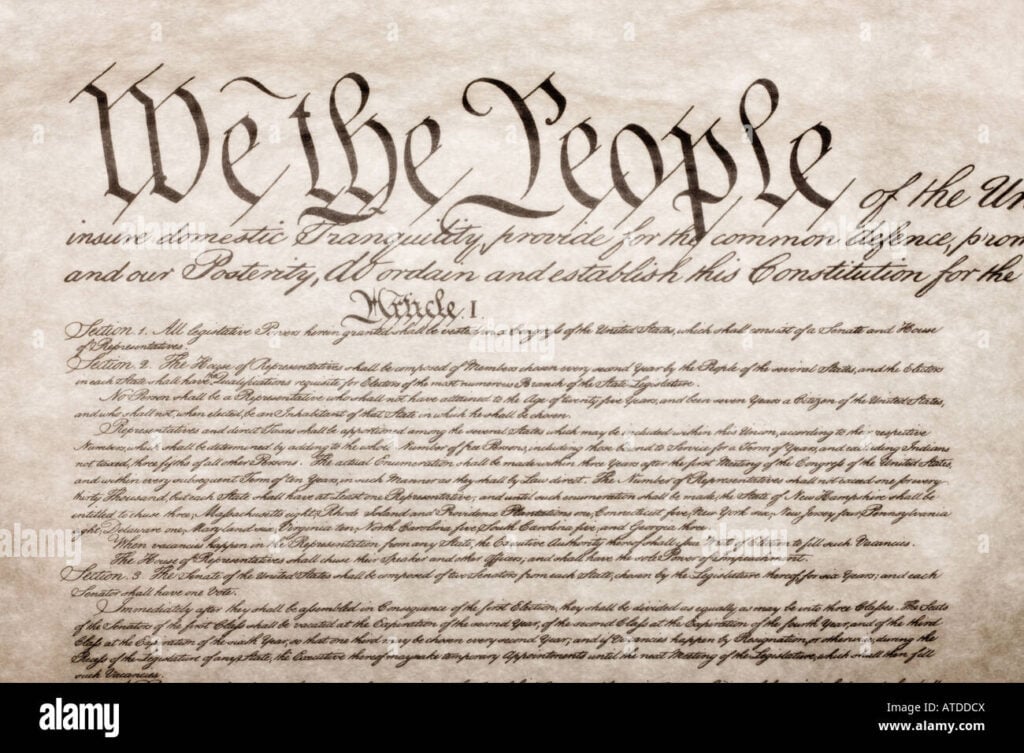 We the People of the Un
insure domestic Tranquility, provide for the common defence, prom
and our Posterity, do ordain and establish this Constitution for the
Article. I.
Section 1. All legislative Powers herein granted shall be vested in a Congress of the United States, which shall consist of a Senate and House
of Representatives.
Section. 2. The House of Representatives shall be composed of Members chosen every second Year by the People of the several States, and the Electors
in each State shall have the Qualifications requisite for Electors of the most numerous Branch of the State Legislature.
No Person shall be a Representative who shall not have attained to the Age of twenty five Years, and been seven Years a Citizen of the United States,
and who shall not, when elected, be an Inhabitant of that State in which he shall be chosen.
Representatives and direct Taxes shall be apportioned among the several States which may be included within this Union, according to their respective
Numbers, which shall be determined by adding to the whole Number of free Persons, including those bound to Service for a Term of Years, and excluding Indians
not taxed, three fifths of all other Persons. The actual Enumeration shall be made within three Years after the first Meeting of the Congress of the United States,
and within every subsequent Term of ten Years, in such Manner as they shall by Law direct. The Number of Representatives shall not exceed one for every
thirty Thousand, but each State shall have at Least one Representative; and until such enumeration shall be made, the State of New Hampshire shall be
entitled to chuse three, Massachusetts eight, Rhode Island and Providence Plantations one, Connecticut five, New York six, New Jersey four, Pennsylvania
eight, Delaware one, Maryland six, Virginia ten, North Carolina five, South Carolina five, and Georgia three.
When vacancies happen in the Representation from any State, the Executive Authority thereof shall issue Writs of Election to fill such Vacancies.
The House of Representatives shall chuse their Speaker and other Officers; and shall have the sole Power of Impeachment.
Section. 3. The Senate of the United States shall be composed of two Senators from each State, chosen by the Legislature thereof, for six Years; and each
Senator shall have one Vote.
Immediately after they shall be assembled in Consequence of the first Election, they shall be divided as equally as may be into three Classes. The Seats
of the Senators of the first Class shall be vacated at the Expiration of the second Year, of the second Class at the Expiration of the fourth Year, and of the third
Class at the Expiration of the sixth Year, so that one third may be chosen every second Year; and if Vacancies happen by Resignation, or otherwise, during the
Recess of the Legislature of any State, the Executive thereof may make temporary Appointments until the next Meeting of the Legislature, which shall then fill
such Vacancies.
alamy
Image ID: ATDDCX
www.alamy.com